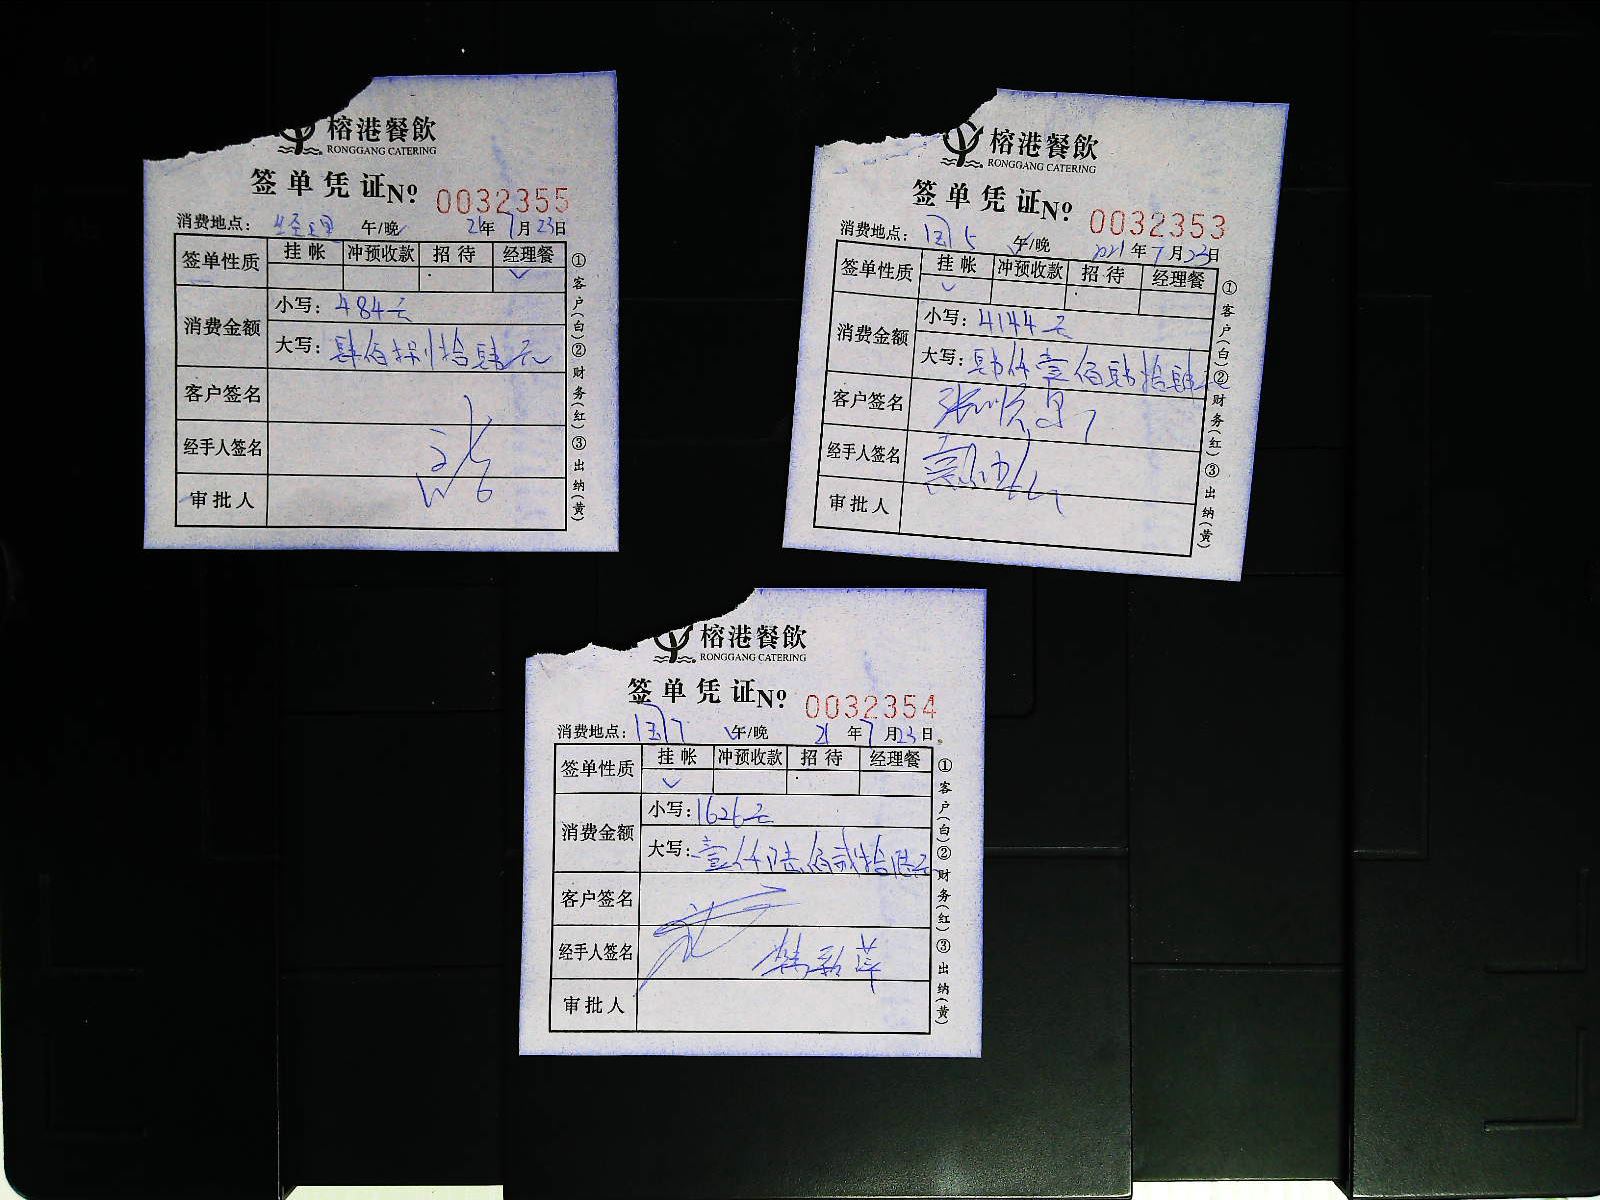 榕港餐飲
RONGGANG CATERING
签单凭证 Nº 0032355
消费地点: 经理 午/晚 21年7月23日
签单性质 挂帐 冲预收款 招待 经理餐
消费金额
小写: 484元
大写: 肆佰捌拾肆元
客户签名
经手人签名
审批人
①客户(白)②财务(红)③出纳(黄)
榕港餐飲
RONGGANG CATERING
签单凭证 Nº 0032353
消费地点: 午/晚 2021年7月23日
签单性质 挂帐 冲预收款 招待 经理餐
消费金额
小写: 4144元
大写: 肆仟壹佰肆拾肆
客户签名
经手人签名
审批人
①客户(白)②财务(红)③出纳(黄)
榕港餐飲
RONGGANG CATERING
签单凭证 Nº 0032354
消费地点: 午/晚 21年7月23日
签单性质 挂帐 冲预收款 招待 经理餐
消费金额
小写: 1626元
大写: 壹仟陆佰贰拾陆元
客户签名
经手人签名
审批人
①客户(白)②财务(红)③出纳(黄)